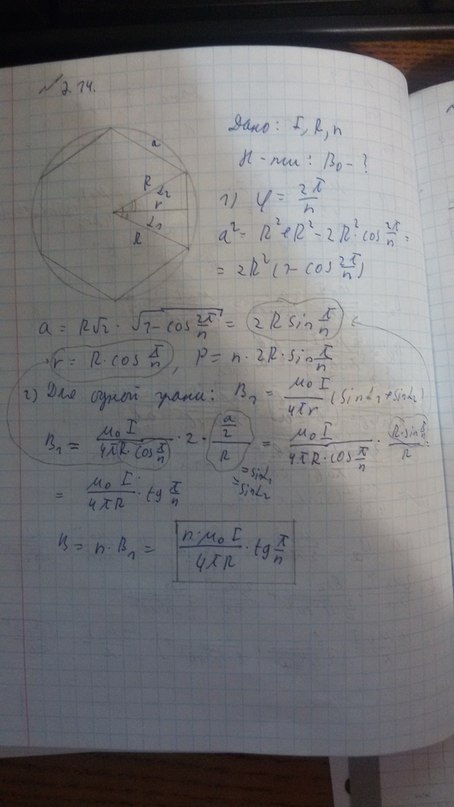 № 2.14.
a
R
α₂
r
α₁
R
Дано: I, R, n
Н-ти: B₀ - ?
1) φ = 2π/n
a² = R² + R² - 2R² cos 2π/n =
= 2R² (1 - cos 2π/n)
a = R√2 · √(1 - cos 2π/n) = 2R sin π/n
r = R · cos π/n, P = n · 2R · sin π/n
2) Для одной грани: B₁ = μ₀I/4πr (sinα₁ + sinα₂)
B₁ = μ₀I/(4πR · cos π/n) · 2 · (a/2)/R = μ₀I/(4πR · cos π/n) · (R · sin π/n)/R
= sinα₁
= sinα₂
= μ₀I/4πR · tg π/n
B = n · B₁ = n · μ₀I/4πR · tg π/n